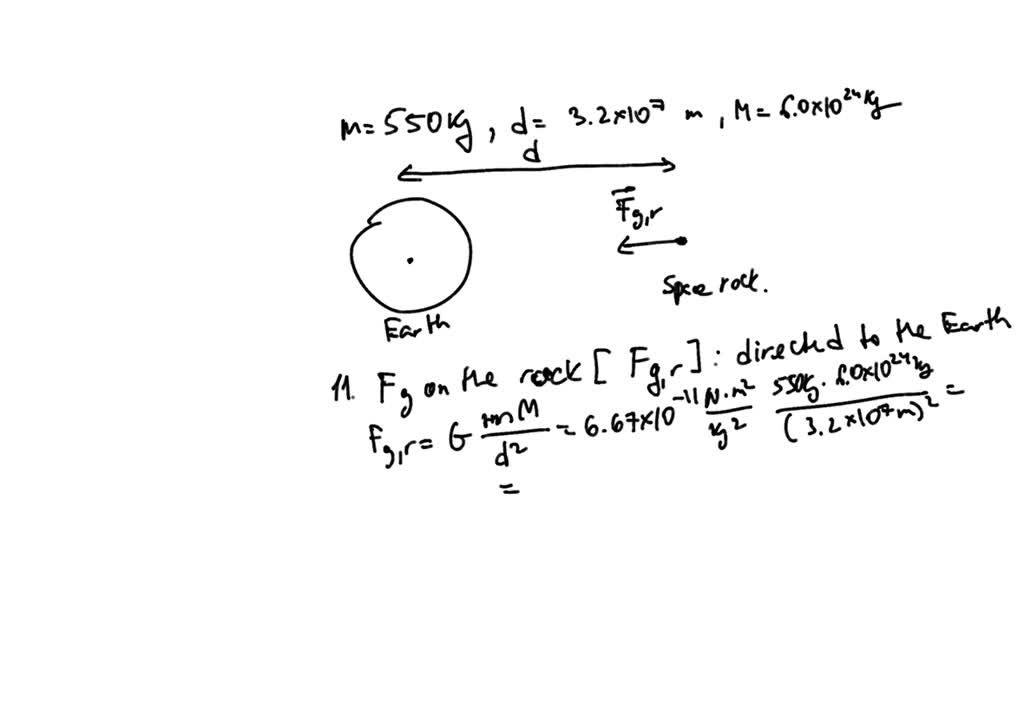 m = 550 kg, d = 3.2×10⁷ m, M = 6.0×10²⁴ kg
d
F⃗g,r
Space rock.
Earth
11. Fg on the rock [Fg,r]: directed to the Earth
Fg,r = G mM/d² = 6.67×10⁻¹¹ N·m²/kg² 550kg · 6.0×10²⁴kg/(3.2×10⁷m)² =
=